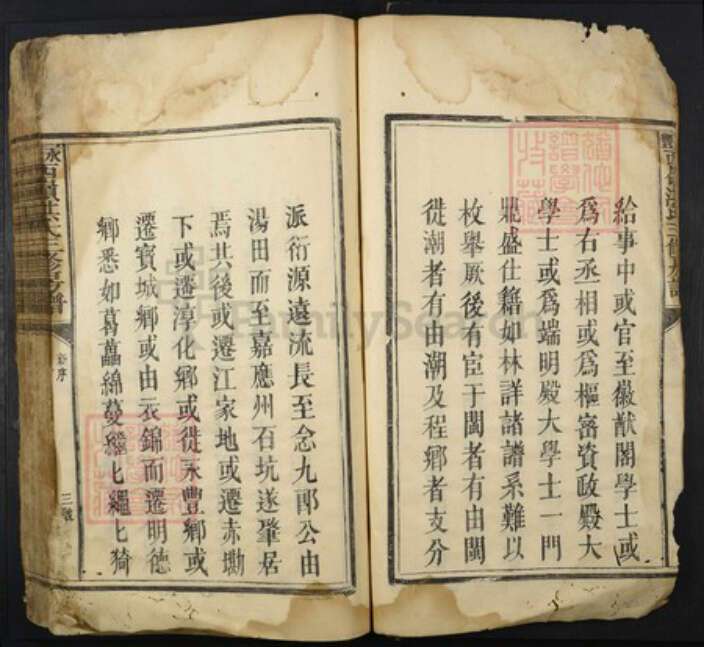 給事中或官至徽猷閣學士或
為右丞相或為樞密資政殿大
學士或為端明殿大學士一門
鼎盛仕籍如林詳諸譜系難以
枚舉厥後有宦于閩者有由閩
徙潮者有由潮及程鄉者支分
派衍源遠流長至念九郎公由
湯田而至嘉應州石坑遂肇居
焉其後或遷江家地或遷赤墈
下或遷淳化鄉或徙永豐鄉或
遷寶城鄉或由衣錦而遷明德
鄉悉如葛藟綿蔓繼匕繩匕猗
序
三
FamilySearch